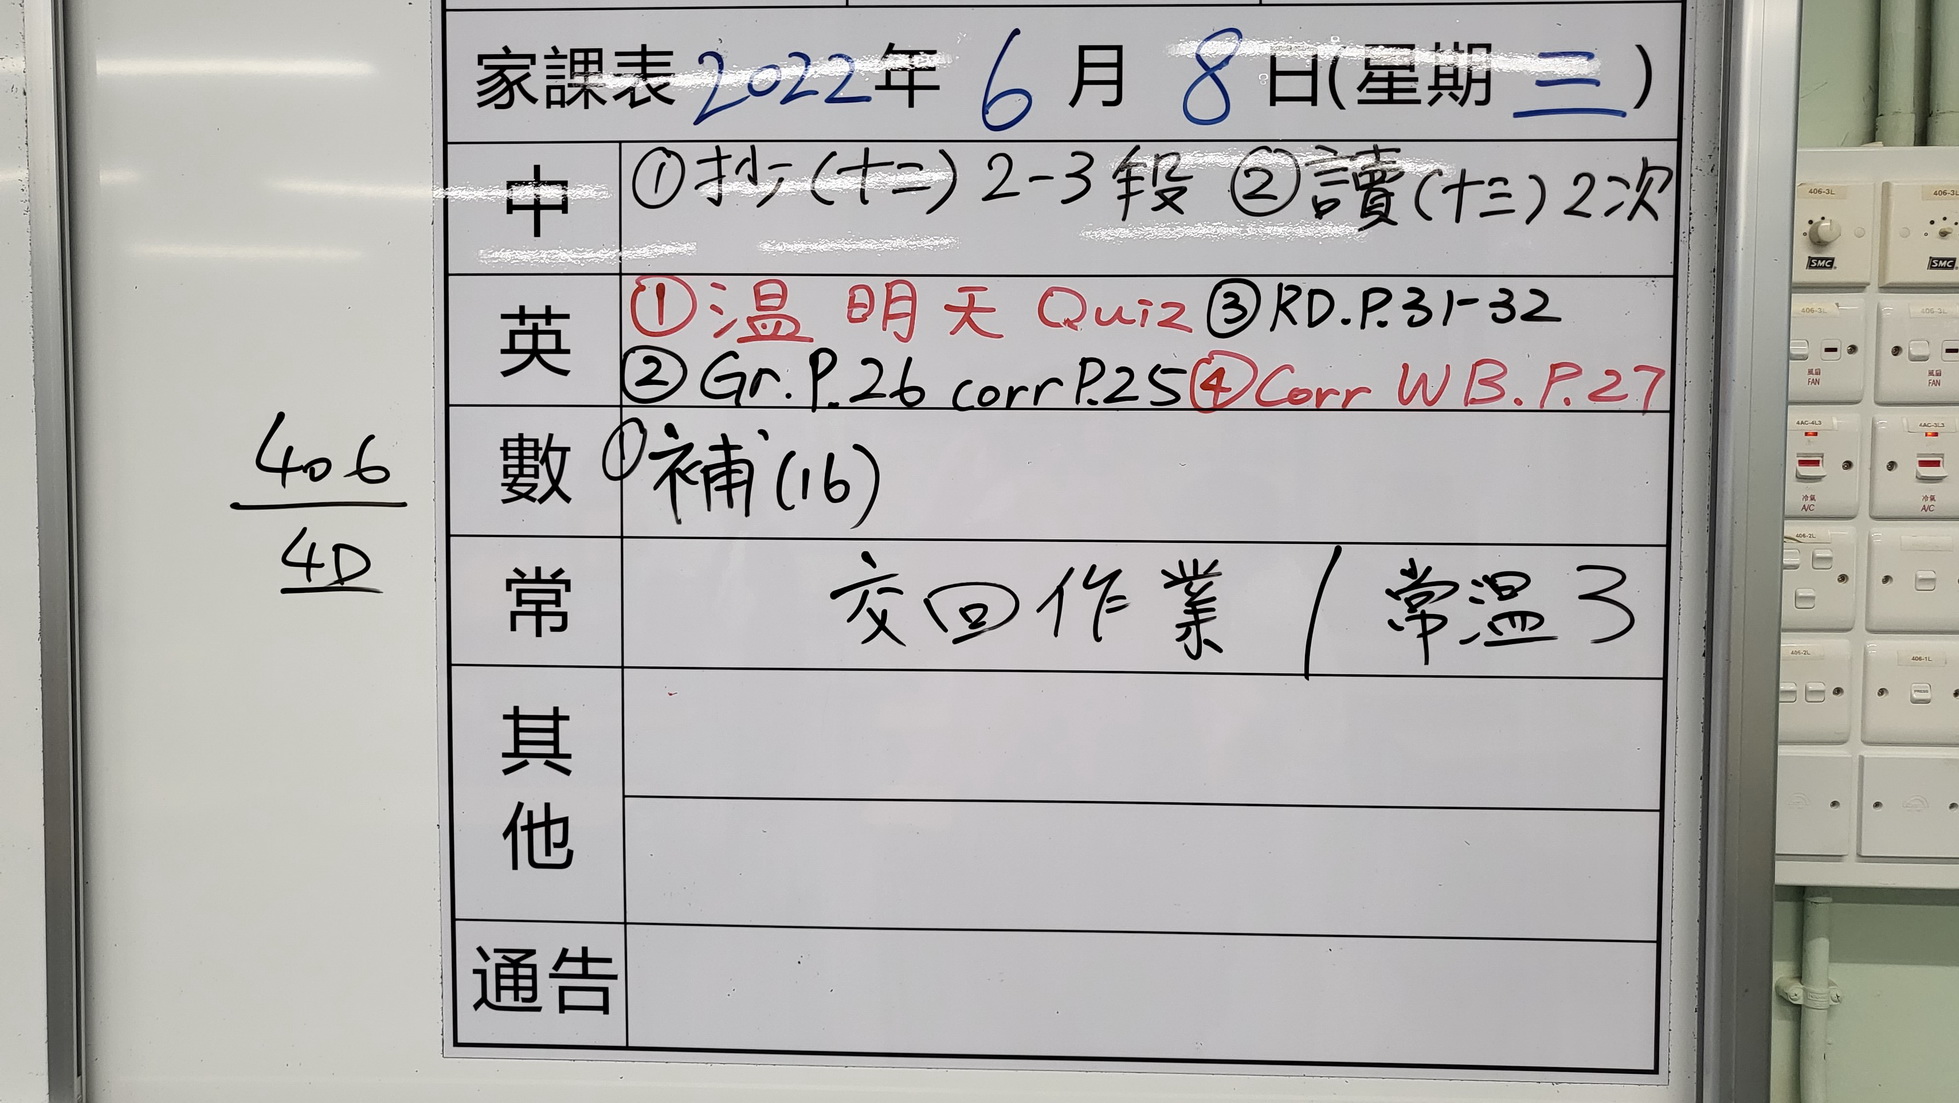 家課表 2022年 6月 8日(星期三)
中
①抄(十二) 2-3段 ②讀(十三) 2次
英
①温 明天 Quiz ③RD.P.31-32
②Gr.P.26 corr P.25 ④Corr WB.P.27
數
①補(16)
常
交回作業 / 常溫3
其他
通告
406
4D
406-3L
406-3L
SMC
SMC
406-3L
406-3L
風扇
FAN
風扇
FAN
4AC-4L3
4AC-3L3
冷氣
A/C
冷氣
A/C
406-2L
406-2L
406-1L
PRESS